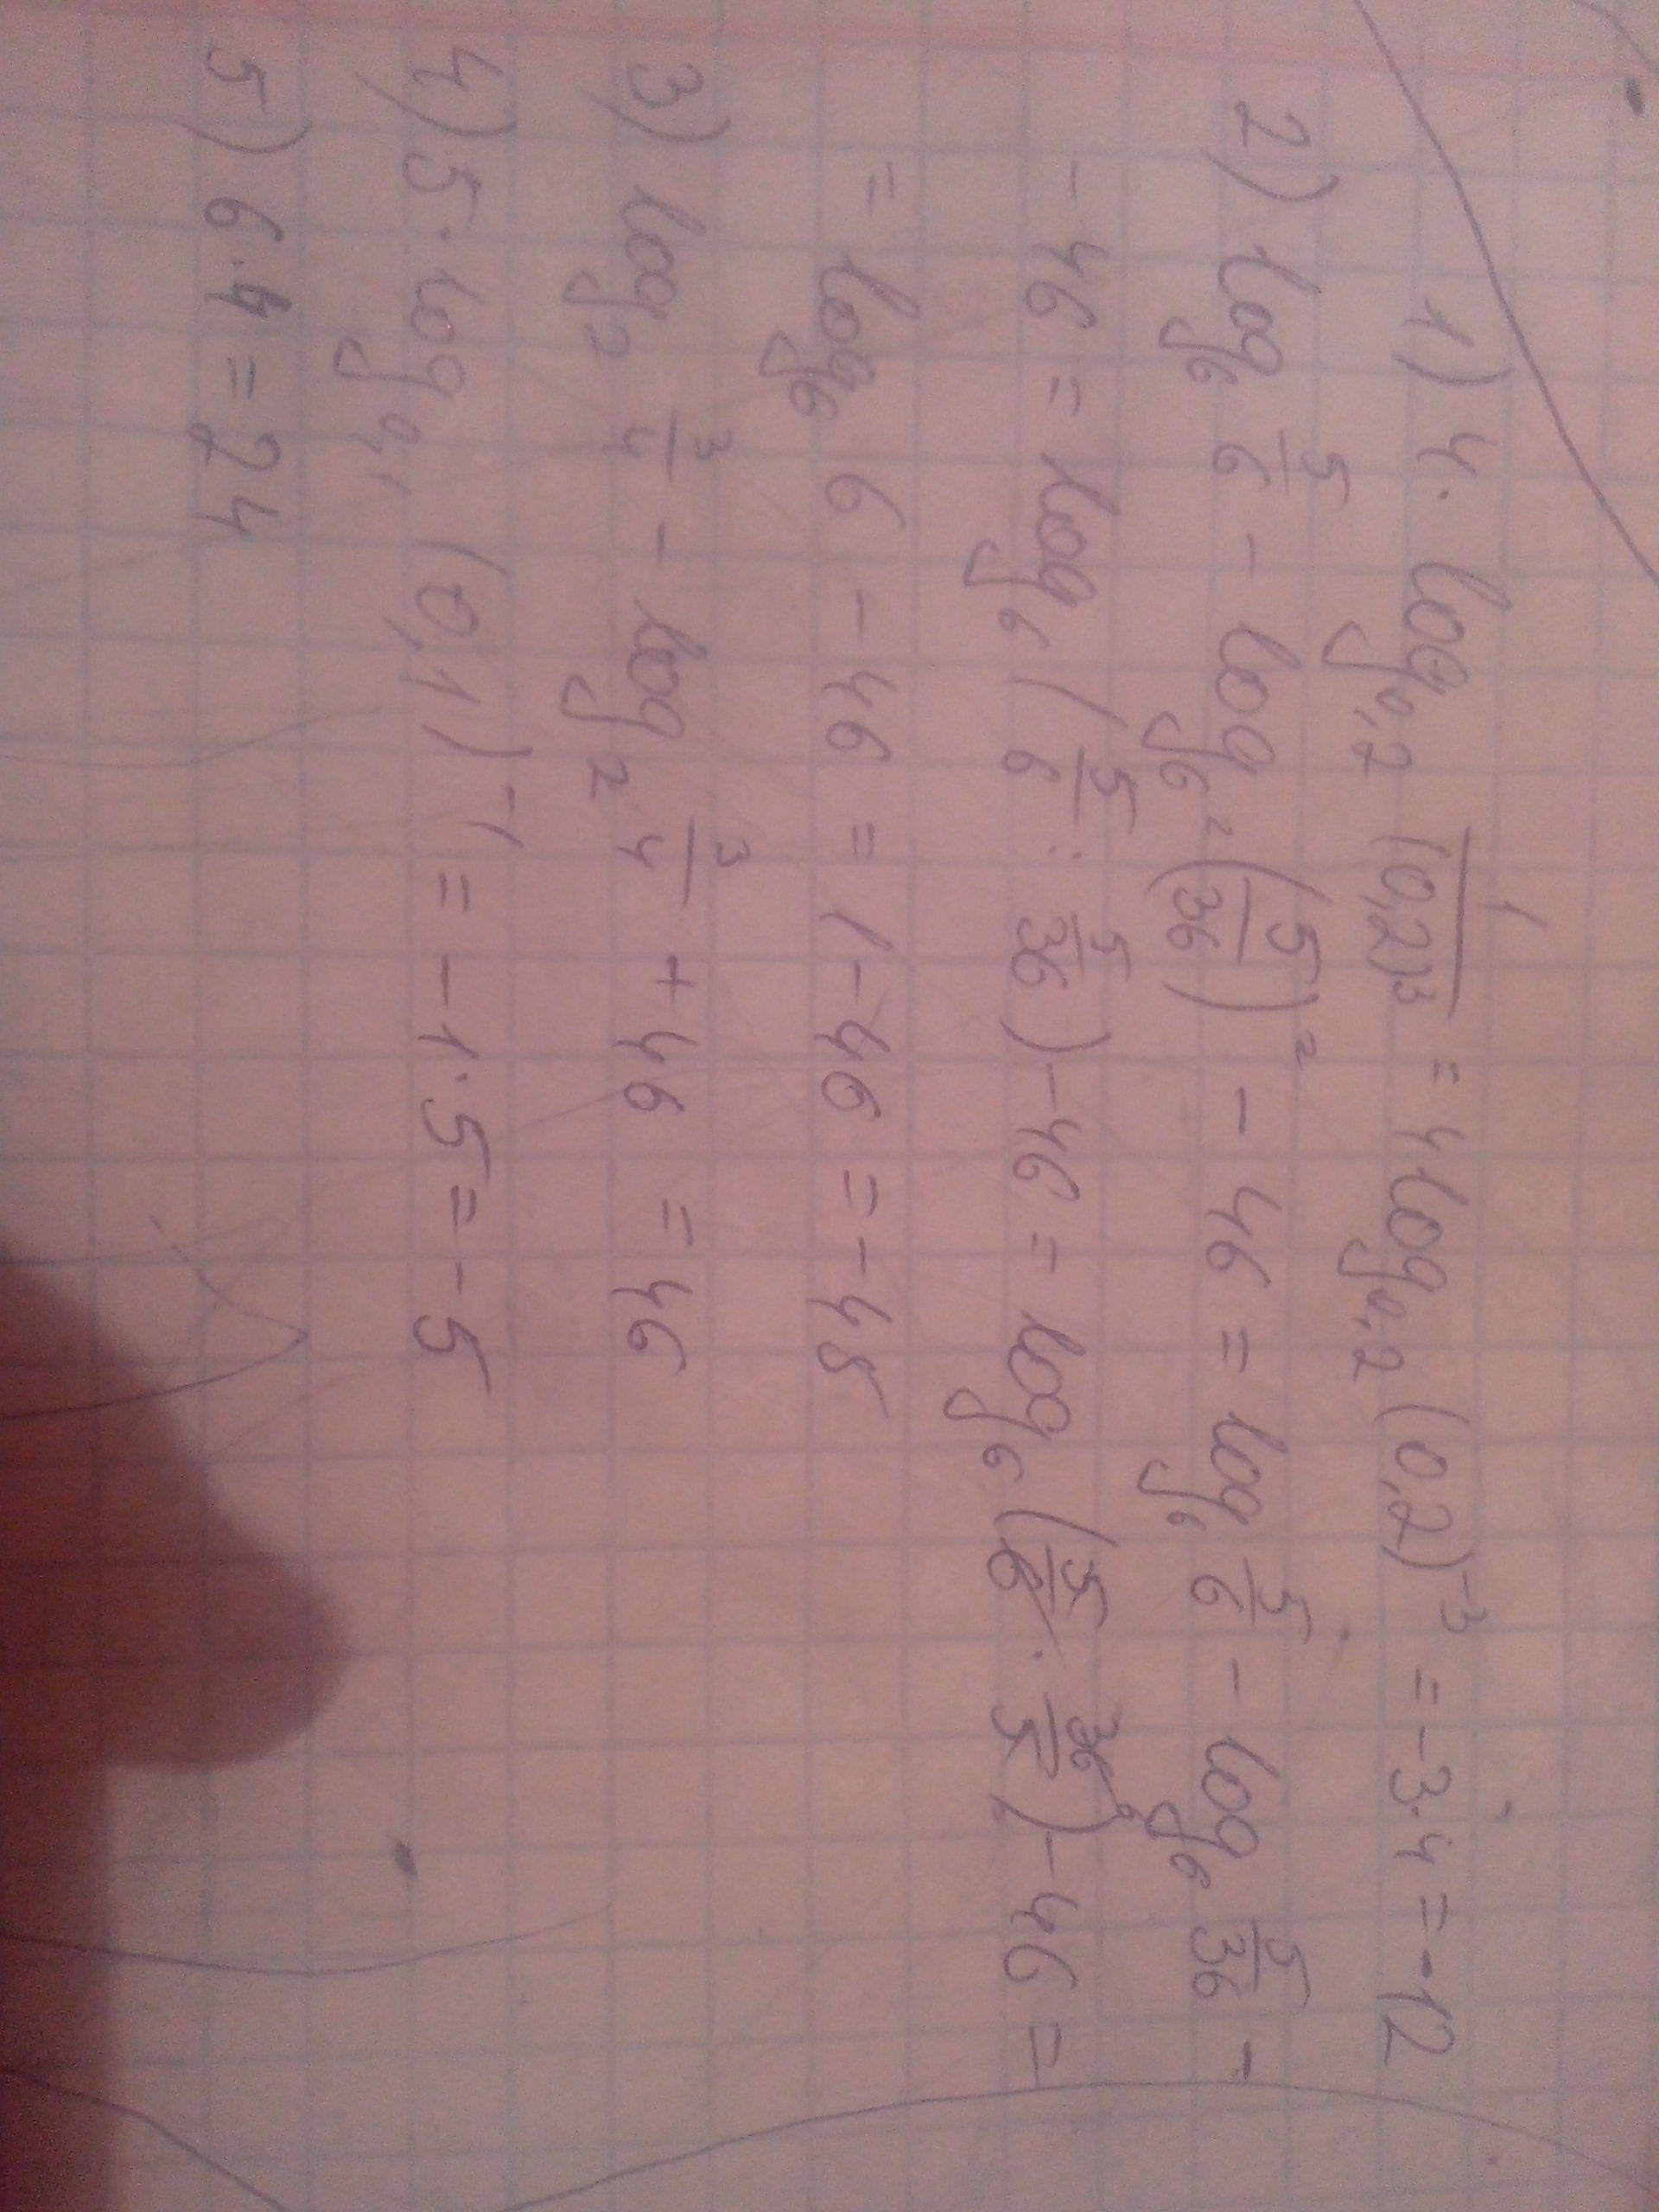 1) 4 · log₀,₂ 1/(0,2)³ = 4 log₀,₂ (0,2)⁻³ = -3·4 = -12
2) log₆ 5/6 - log₆² (5/36)² - 46 = log₆ 5/6 - log₆ 5/36 -
- 46 = log₆ (5/6 : 5/36) - 46 = log₆ (5/6 · 36/5) - 46 =
= log₆ 6 - 46 = 1 - 46 = -45
3) log₂ 3/4 - log₂ 3/4 + 46 = 46
4) 5 · log₀,₁ (0,1)⁻¹ = -1·5 = -5
5) 6·4 = 24